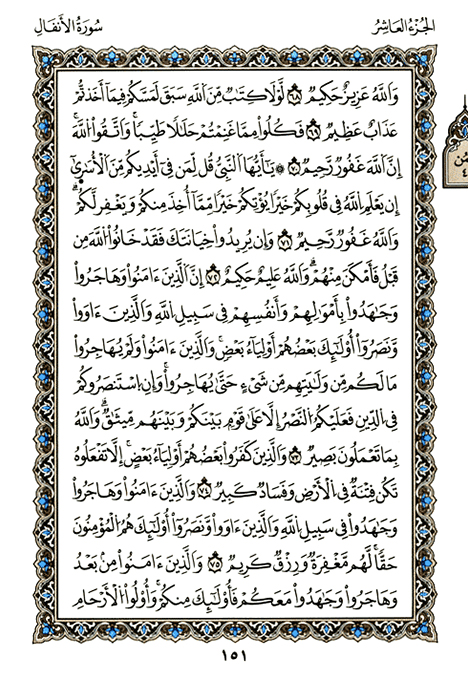 الجُزْءُ العَاشِرُ
سُورَةُ الأَنفَالِ
وَاللَّهُ عَزِيزٌ حَكِيمٌ ٦٨ لَّوْلَا كِتَٰبٌ مِّنَ اللَّهِ سَبَقَ لَمَسَّكُمْ فِيمَا أَخَذتُّمْ
عَذَابٌ عَظِيمٌ ٦٩ فَكُلُواْ مِمَّا غَنِمْتُمْ حَلَٰلًا طَيِّبًا وَاتَّقُواْ اللَّهَ
إِنَّ اللَّهَ غَفُورٌ رَّحِيمٌ ٧٠ ۞ يَٰأَيُّهَا النَّبِيُّ قُل لِّمَن فِي أَيْدِيكُم مِّنَ الْأُسَٰرَىٰ
إِن يَعْلَمِ اللَّهُ فِي قُلُوبِكُمْ خَيْرًا يُؤْتِكُمْ خَيْرًا مِّمَّا أُخِذَ مِنكُمْ وَيَغْفِر لَّكُمْ
وَاللَّهُ غَفُورٌ رَّحِيمٌ ٧١ وَإِن يُرِيدُواْ خِيَانَتَكَ فَقَدْ خَانُواْ اللَّهَ مِن
قَبْلُ فَأَمْكَنَ مِنْهُمْ وَاللَّهُ عَلِيمٌ حَكِيمٌ ٧٢ إِنَّ الَّذِينَ ءَامَنُواْ وَهَاجَرُواْ
وَجَٰهَدُواْ بِأَمْوَٰلِهِمْ وَأَنفُسِهِمْ فِي سَبِيلِ اللَّهِ وَالَّذِينَ ءَاوَواْ
وَّنَصَرُواْ أُوْلَٰئِكَ بَعْضُهُمْ أَوْلِيَاءُ بَعْضٍ وَالَّذِينَ ءَامَنُواْ وَلَمْ يُهَاجِرُواْ
مَا لَكُم مِّن وَلَٰيَتِهِم مِّن شَيْءٍ حَتَّىٰ يُهَاجِرُواْ وَإِنِ اسْتَنصَرُوكُمْ
فِي الدِّينِ فَعَلَيْكُمُ النَّصْرُ إِلَّا عَلَىٰ قَوْمٍ بَيْنَكُمْ وَبَيْنَهُم مِّيثَٰقٌ وَاللَّهُ
بِمَا تَعْمَلُونَ بَصِيرٌ ٧٣ وَالَّذِينَ كَفَرُواْ بَعْضُهُمْ أَوْلِيَاءُ بَعْضٍ إِلَّا تَفْعَلُوهُ
تَكُن فِتْنَةٌ فِي الْأَرْضِ وَفَسَادٌ كَبِيرٌ ٧٤ وَالَّذِينَ ءَامَنُواْ وَهَاجَرُواْ
وَجَٰهَدُواْ فِي سَبِيلِ اللَّهِ وَالَّذِينَ ءَاوَواْ وَّنَصَرُواْ أُوْلَٰئِكَ هُمُ الْمُؤْمِنُونَ
حَقًّا لَّهُم مَّغْفِرَةٌ وَرِزْقٌ كَرِيمٌ ٧٥ وَالَّذِينَ ءَامَنُواْ مِنۢ بَعْدُ
وَهَاجَرُواْ وَجَٰهَدُواْ مَعَكُمْ فَأُوْلَٰئِكَ مِنكُمْ وَأُوْلُواْ الْأَرْحَامِ
١٥١